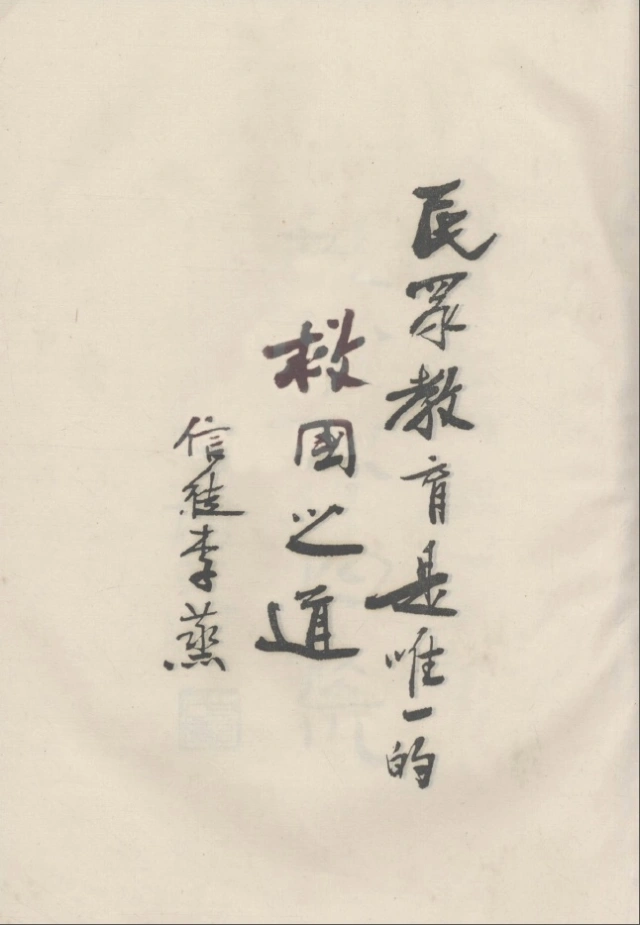 民眾教育是唯一的
救國之道
信徒李蒸